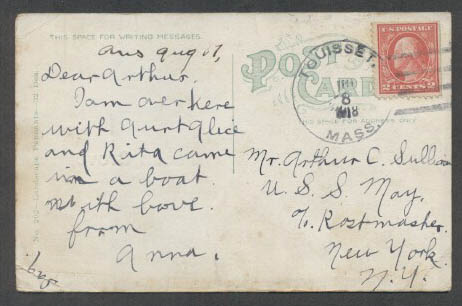 THIS SPACE FOR WRITING MESSAGES.
POST CARD
THIS SPACE FOR ADDRESS ONLY
TOUISSET.
8
1918
MASS.
U.S. POSTAGE
2 CENTS 2
Aug 7,
Dear Arthur.
I am over here
with Aunt Alice
and Rita came
in a boat.
with love.
from
Anna.
Mr. Arthur C. Sullivan
U. S. S. May,
c/o Postmaster.
New York.
N. Y.